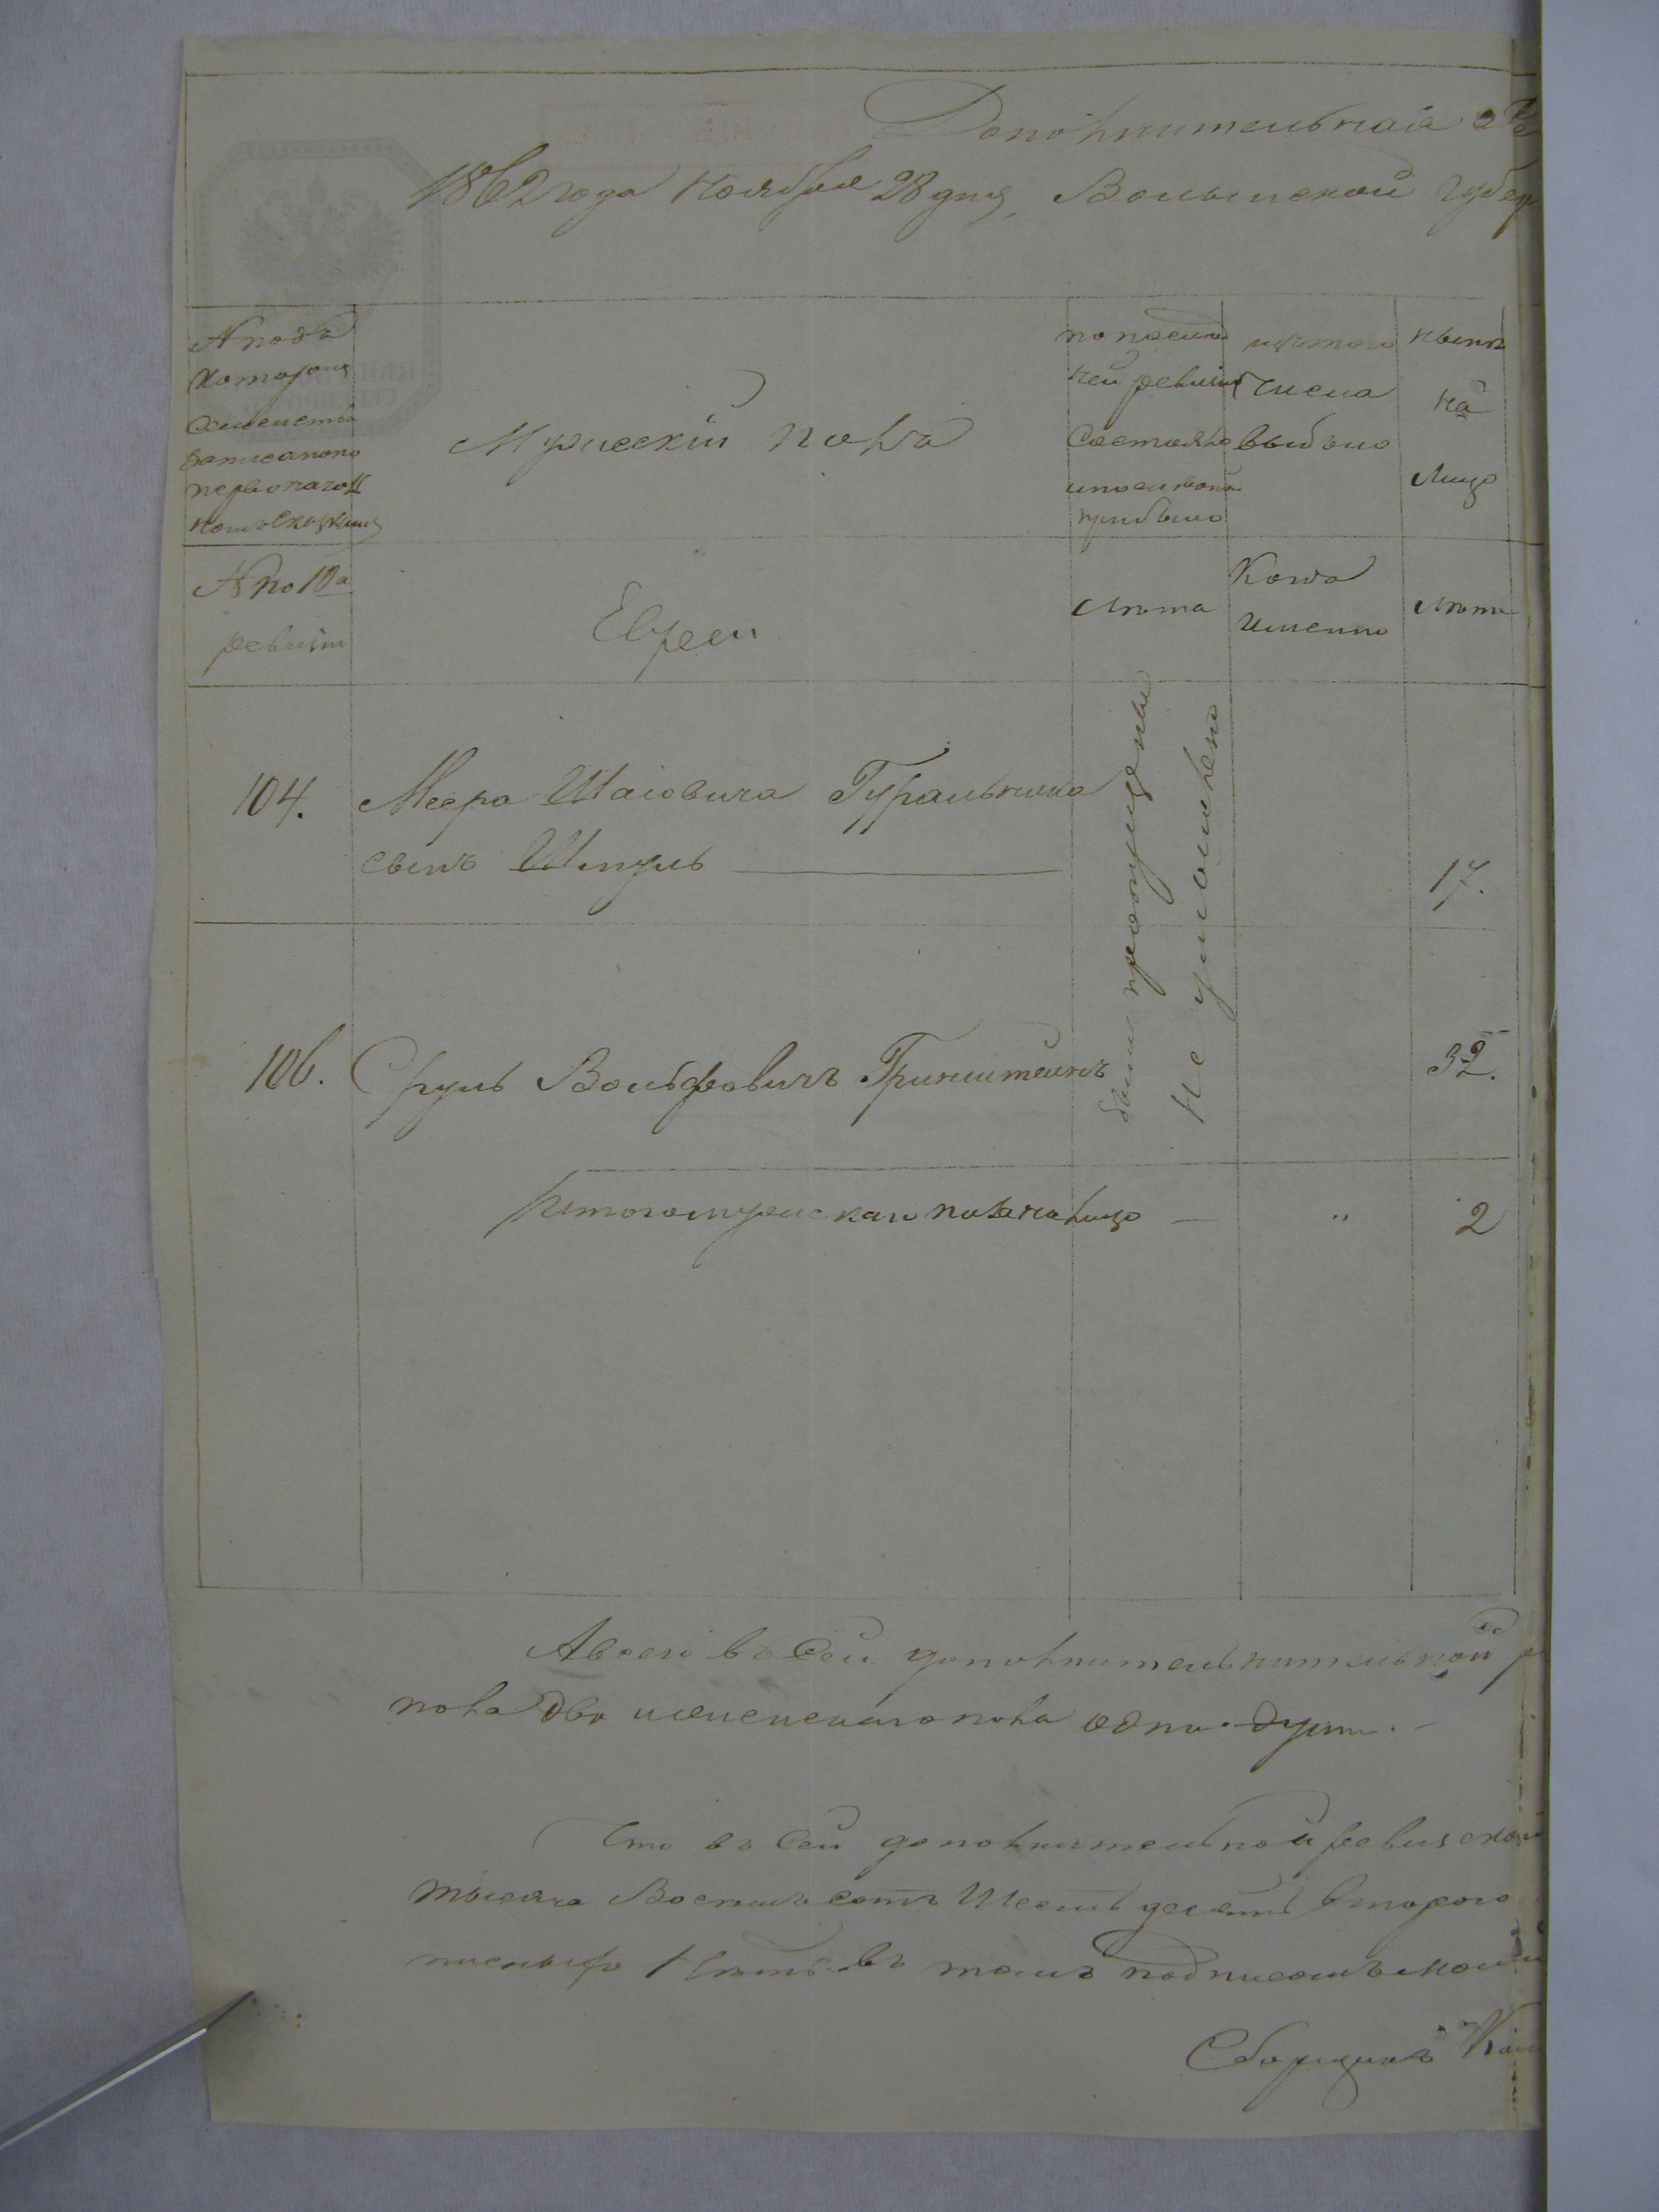 Дополнительная Ре
1862 года Ноября 28 дня, Волынской Губер
№ подъ
которымъ
семейство
записано
Мужескій полъ
по послѣд
ней ревизіи
состояло
и после того
прибыло
изъ того
числа
выбыло
нынѣ
на
лицо
№ по 10й
ревизіи
Евреи
Лѣта
Когда
Именно
Лѣта
104.
Меера Шаiовича Гуральника
сынъ Шмуль
17.
были пропущены
не умышлено
106.
Сруль Вольфовичъ Гринштейнъ
32.
Итого мужескаго пола на лицо — " 2
А всего въ сей дополнительнительной р
пола два и женскаго пола одна душа. —
Что въ сей дополнительной ревизской
тысяча восемъ сотъ шесть десятъ второго
въ томъ подписомъ
Сборщикъ